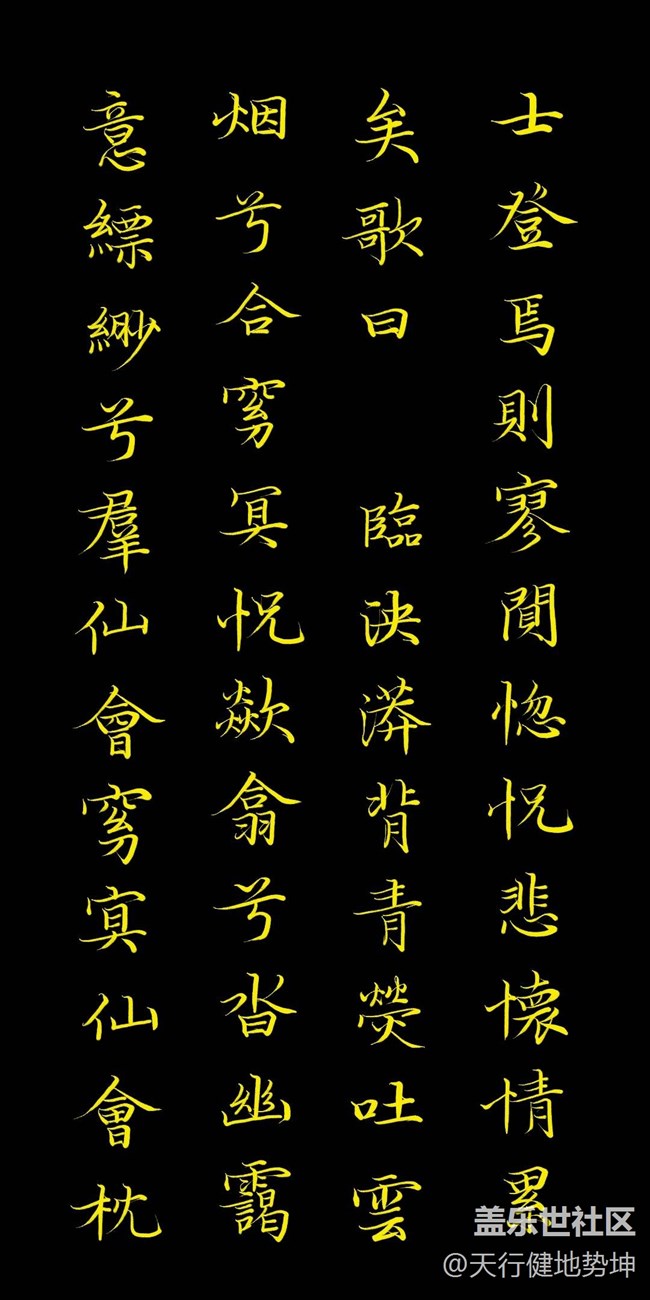 士登焉則寥閴惚怳悲懷情累
矣歌曰 臨泱漭背青熒吐雲
烟兮合窈冥怳歘翕兮沓幽靄
意縹緲兮羣仙會窈冥仙會枕
盖乐世社区
@天行健地势坤